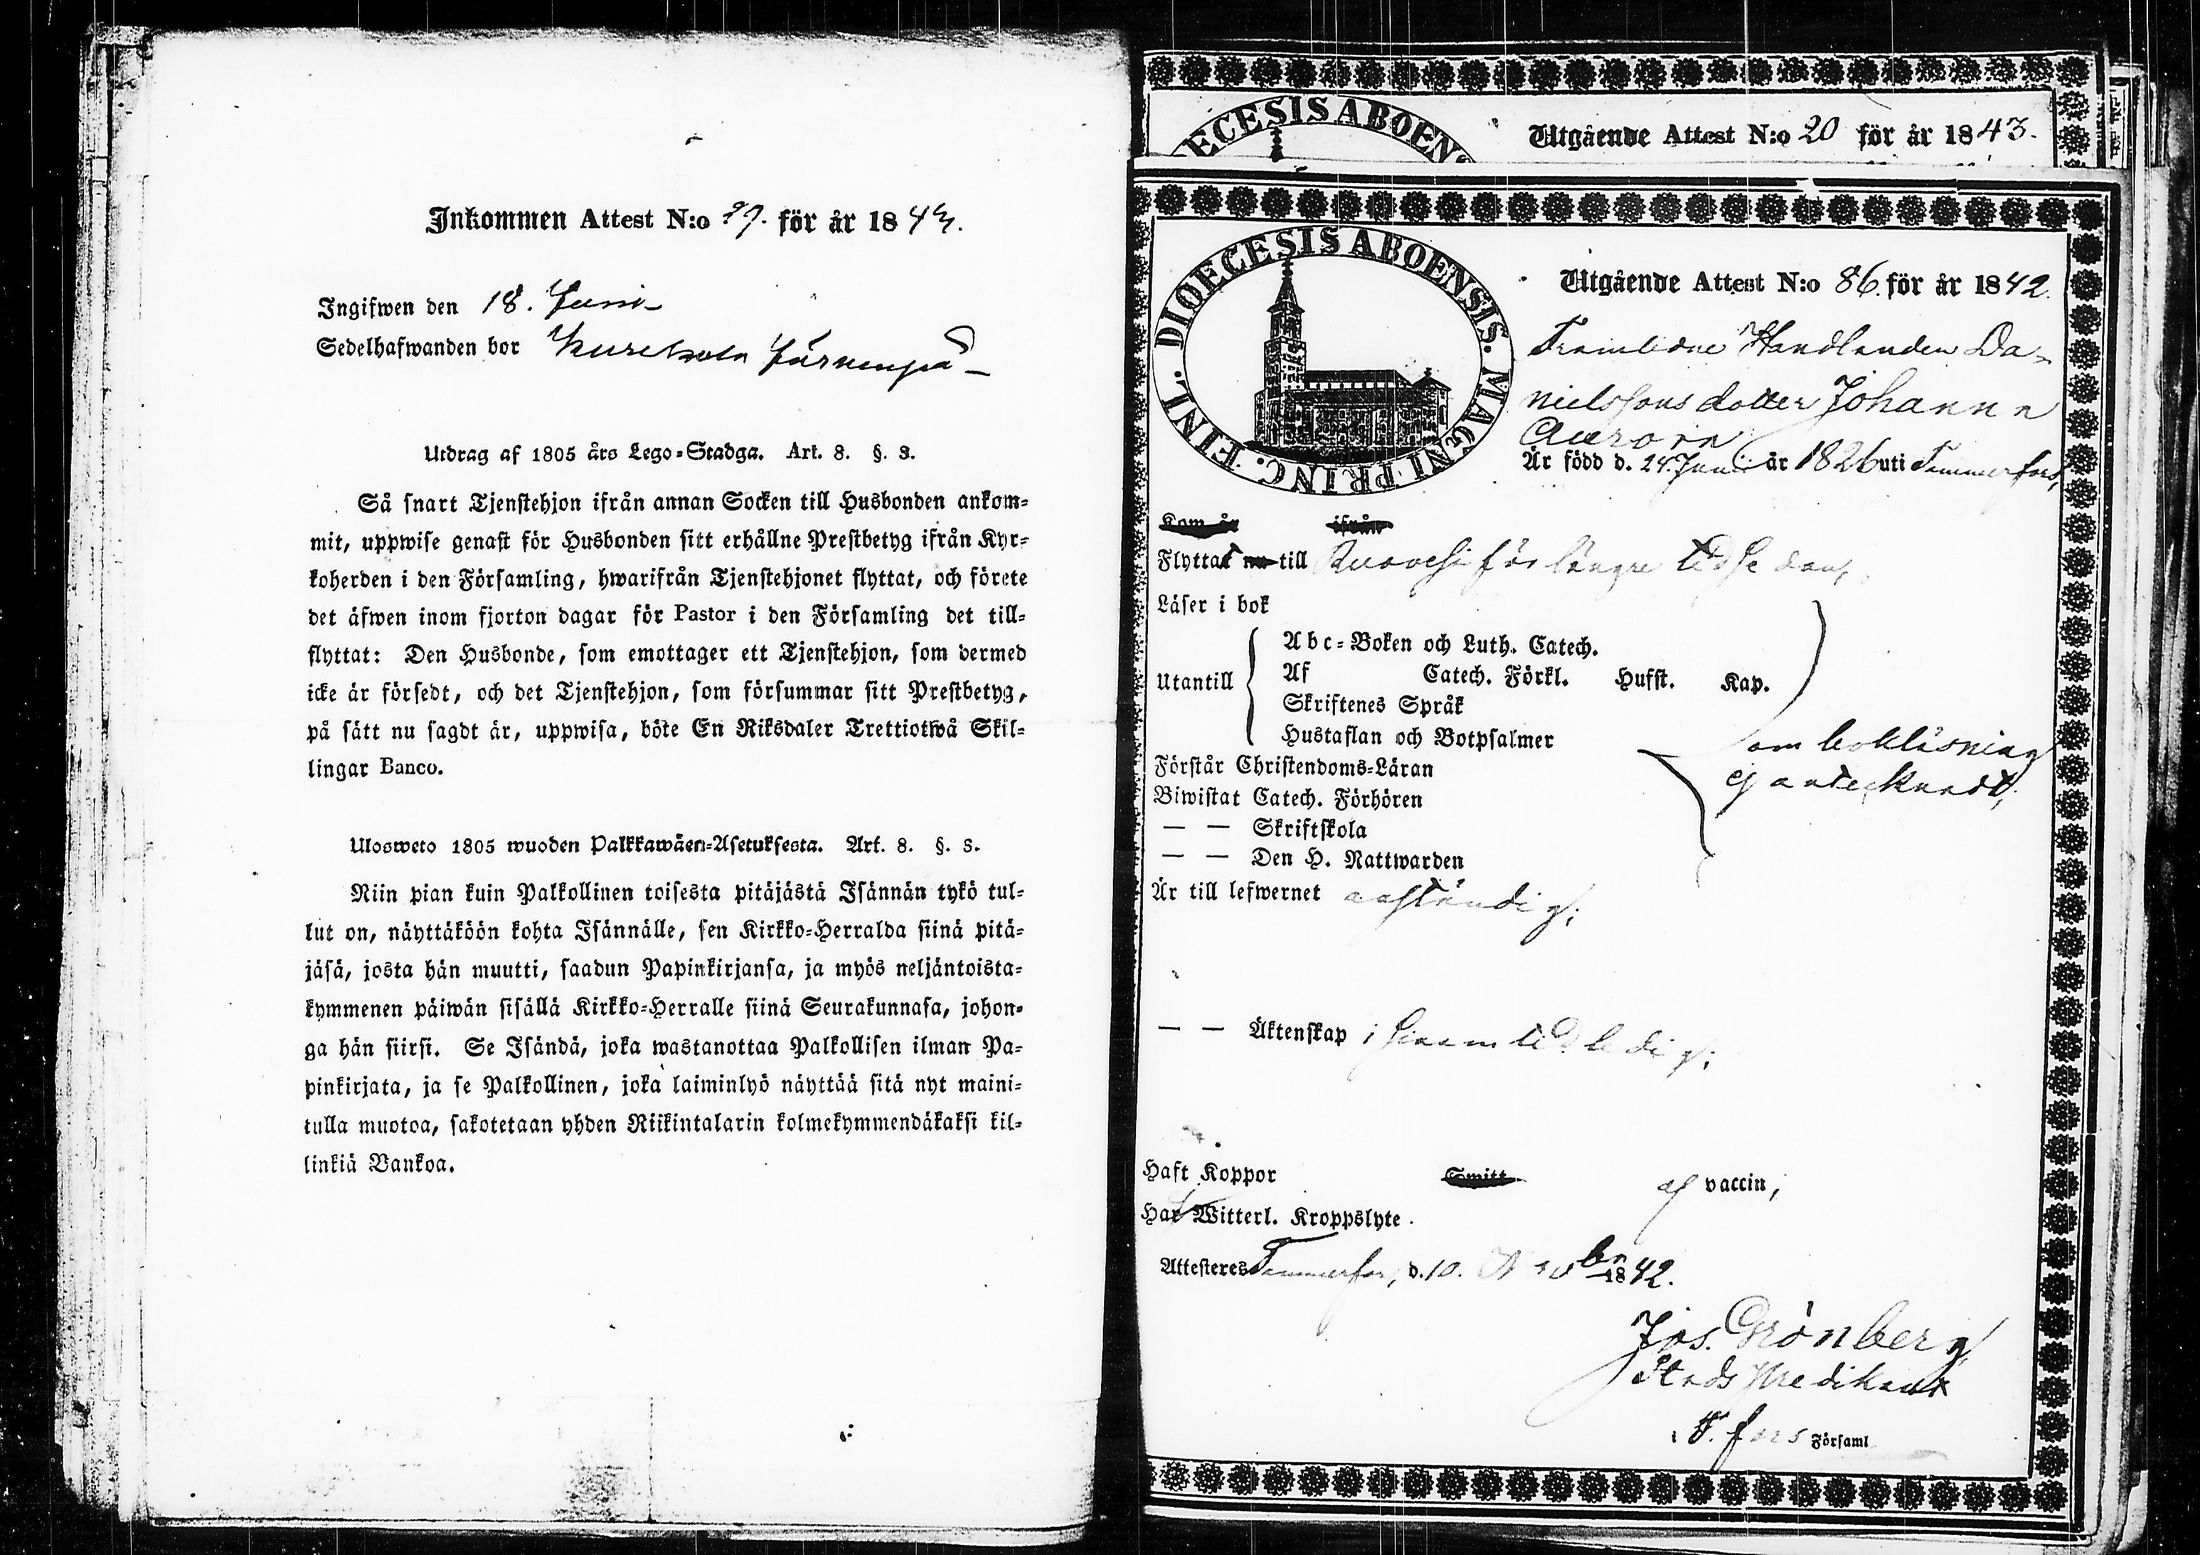 Inkommen Attest N:o 29. för år 1843.
Ingifwen den 18. Juni
Sedelhafwanden bor Järvenpä
Utdrag af 1805 års Lego-Stadga. Art. 8. §. 3.
Så snart Tjenstehjon ifrån annan Socken till Husbonden ankom-
mit, uppwise genast för Husbonden sitt erhållne Prestbetyg ifrån Kyr-
koherden i den Församling, hwarifrån Tjenstehjonet flyttat, och förete
det äfwen inom fjorton dagar för Pastor i den Församling det till-
flyttat: Den Husbonde, som emottager ett Tjenstehjon, som dermed
icke är försedt, och det Tjenstehjon, som försummar sitt Prestbetyg,
på sätt nu sagdt är, uppwisa, böte En Riksdaler Trettiotwå Skil-
lingar Banco.
Ulosweto 1805 wuoden Palkkawäen-Asetuksesta. Art. 8. §. 3.
Niin pian kuin Palkollinen toisesta pitäjästä Isännän tykö tul-
lut on, näyttäköön kohta Isännälle, sen Kirkko-Herralda siinä pitä-
jäsä, josta hän muutti, saadun Papinkirjansa, ja myös neljäntoista-
kymmenen päiwän sisällä Kirkko-Herralle siinä Seurakunnasa, johon-
ga hän siirsi. Se Isändä, joka wastanottaa Palkollisen ilman Pa-
pinkirjata, ja se Palkollinen, joka laiminlyö näyttää sitä nyt maini-
tulla muotoa, sakotetaan yhden Riikintalarin kolmekymmendäkaksi kil-
linkiä Bankoa.
ECESIS ABOEN
Utgående Attest N:o 20 för år 1843.
DIOECESIS ABOENSIS. MAGNI PRINC. FINL.
Utgående Attest N:o 86. för år 1842.
Framledne Handlanden Da-
nielssons dotter Johanna
Aurora
Är född d. 24. Juni år 1826 uti Tammerfors,
Kom år ifrån
Flyttat nu till Ruovesi för längre tid sedan,
Läser i bok
Utantill
Abc-Boken och Luth. Catech.
Af Catech. Förkl. Hufst. Kap.
Skriftenes Språk
Hustaflan och Botpsalmer
Förstår Christendoms-Läran
Biwistat Catech. Förhören
— — Skriftskola
— — Den H. Nattwarden
som bokläsning
ej antecknadt,
Är till lefwernet anständig;
— — Äktenskap i sin om tid ledig;
Haft Koppor Smitt af vaccin,
Har Witterl. Kroppslyte.
Attesteres Tammerfors, d. 10. Novbr 1842.
Jos. Grönberg
Stads Predikant
i T.fors Församl